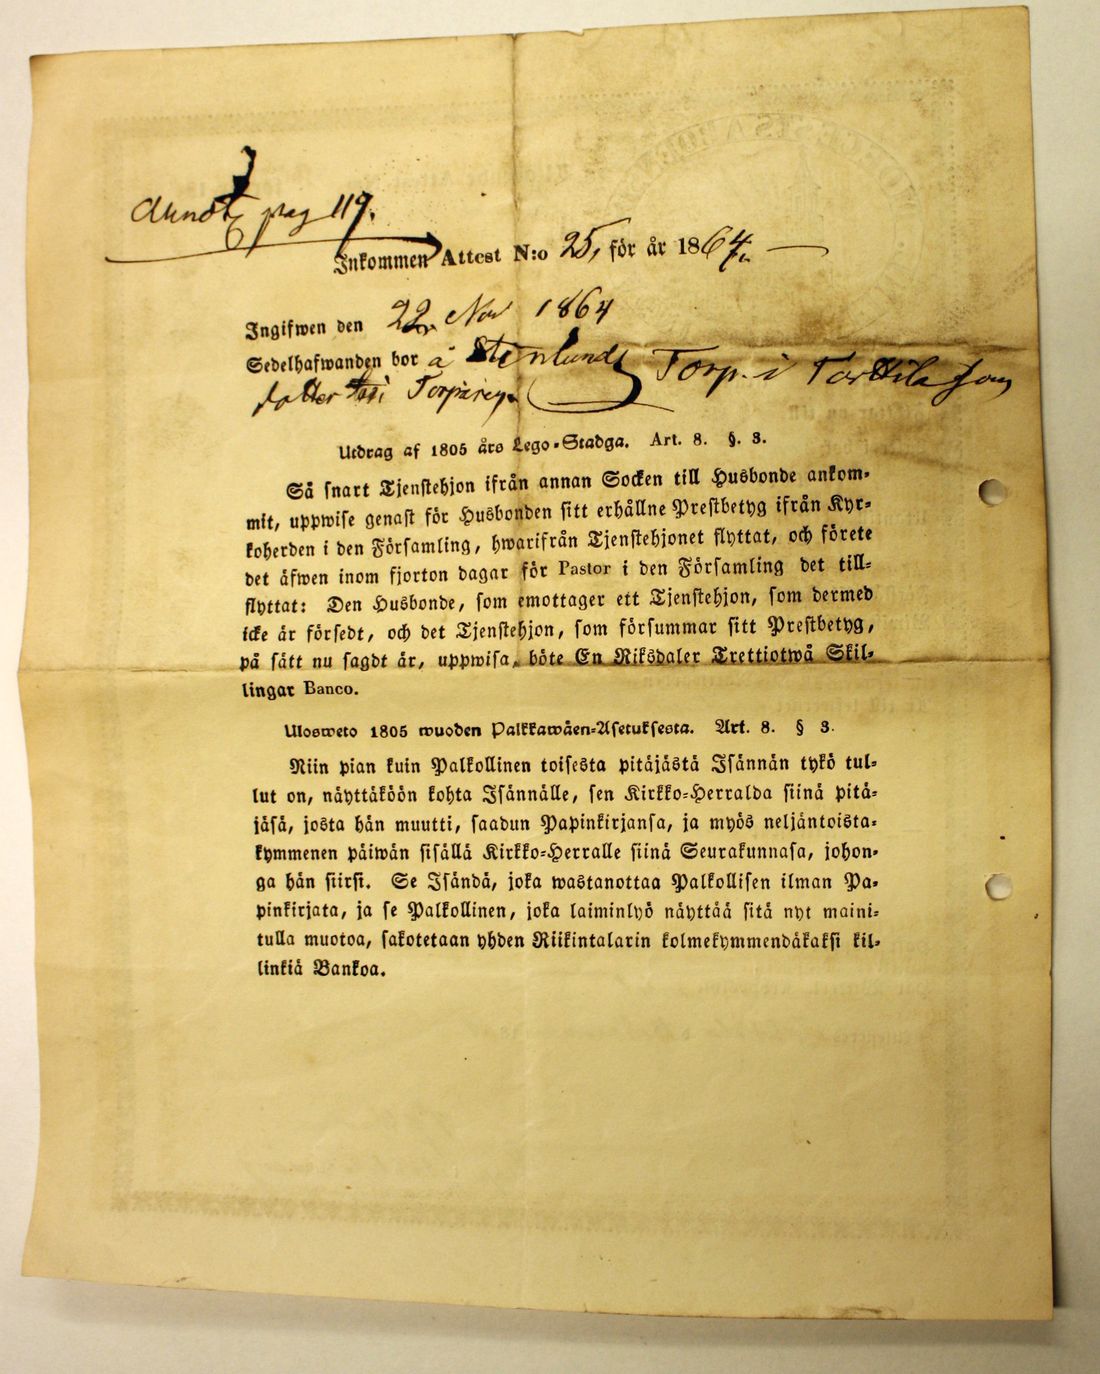 pag 119.
Inkommen Attest N:o 25, för år 1864.
Ingifwen den 22 Nov 1864
Sedelhafwanden bor å Stenlunds Torp. i Torttila som
dotter Torparen
Utdrag af 1805 års Lego-Stadga. Art. 8. §. 3.
Så snart Tjenstehjon ifrån annan Socken till Husbonde ankom-
mit, uppwise genast för Husbonden sitt erhållne Prestbetyg ifrån Kyr-
koherden i den Församling, hwarifrån Tjenstehjonet flyttat, och förete
det äfwen inom fjorton dagar för Pastor i den Församling det till-
flyttat: Den Husbonde, som emottager ett Tjenstehjon, som dermed
icke är försedt, och det Tjenstehjon, som försummar sitt Prestbetyg,
på sätt nu sagdt är, uppwisa, böte En Riksdaler Trettiotwå Skil-
lingar Banco.
Ulosweto 1805 wuoden Palkkawäen-Asetuksesta. Art. 8. § 3.
Niin pian kuin Palkollinen toisesta pitäjästä Isännän tykö tul-
lut on, näyttäköön kohta Isännälle, sen Kirkko-Herralda siinä pitä-
jäsä, josta hän muutti, saadun Papinkirjansa, ja myös neljäntoista-
kymmenen päiwän sisällä Kirkko-Herralle siinä Seurakunnasa, johon-
ga hän siirsi. Se Isändä, joka wastanottaa Palkollisen ilman Pa-
pinkirjata, ja se Palkollinen, joka laiminlyö näyttää sitä nyt maini-
tulla muotoa, sakotetaan yhden Riikintalarin kolmekymmendäkaksi kil-
linkiä Bankoa.